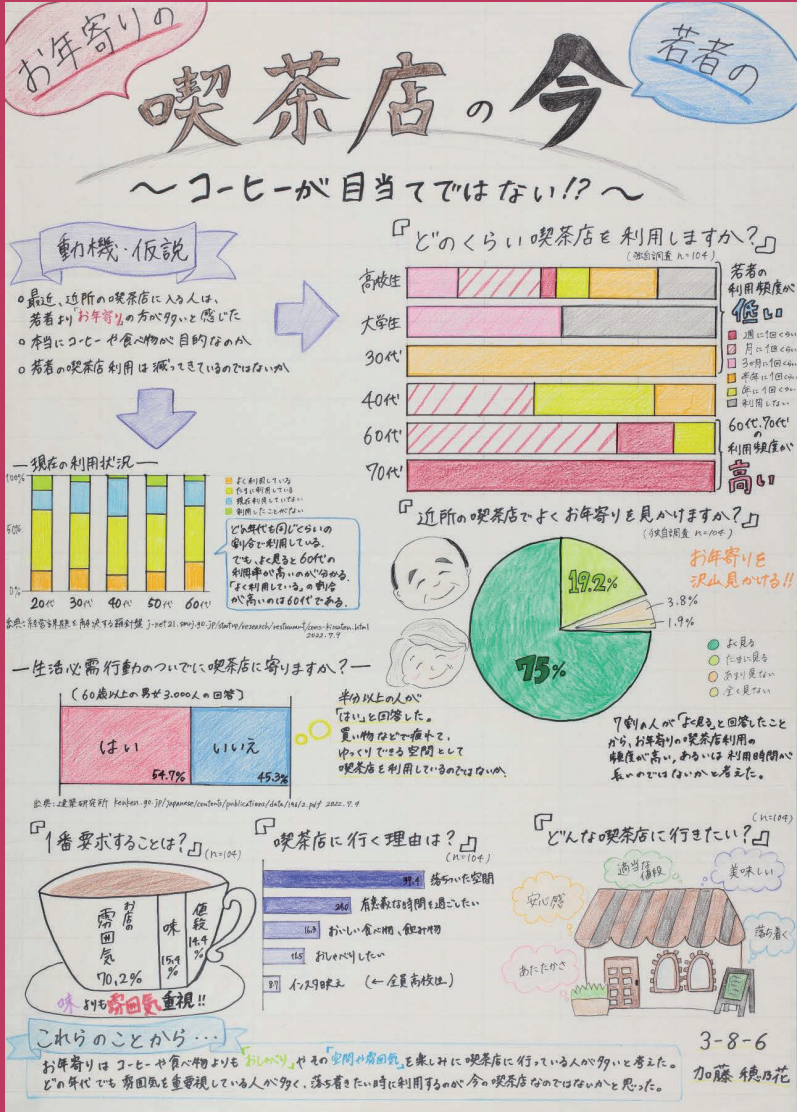 お年寄りの
若者の
喫茶店の今
～コーヒーが目当てではない!?～
動機・仮説
○最近、近所の喫茶店に入る人は、
若者より「お年寄り」の方が多いと感じた
○本当にコーヒーや食べ物が目的なのか
○若者の喫茶店利用は減ってきているのではないか
『どのくらい喫茶店を利用しますか?』
(独自調査 n=104)
高校生
大学生
30代
40代
60代
70代
若者の
利用頻度が
低い
週に1回くらい
月に1回くらい
3か月に1回くらい
半年に1回くらい
年に1回くらい
利用しない
60代.70代
の
利用頻度が
高い
―現在の利用状況―
100%
50%
0%
20代 30代 40代 50代 60代
よく利用している
たまに利用している
現在利用していない
利用したことがない
どの年代も同じくらいの
割合で利用している.
でも、よく見ると60代の
利用率が高いのが分かる.
「よく利用している」の割合
が高いのは60代である.
出典:経営課題を解決する羅針盤 j-net21.smrj.go.jp/startup/research/restaurant/cons-kissaten.html
2022.7.9
『近所の喫茶店でよくお年寄りを見かけますか?』
(独自調査 n=104)
お年寄りを
沢山見かける!!
19.2%
3.8%
1.9%
75%
よく見る
たまに見る
あまり見ない
全く見ない
7割の人が「よく見る」と回答したこと
から、お年寄りの喫茶店利用の
頻度が高い、あるいは利用時間が
長いのではないかと考えた。
―生活必需行動のついでに喫茶店に寄りますか?―
(60歳以上の男女3.000人の回答)
はい
54.7%
いいえ
45.3%
半分以上の人が
「はい」と回答した。
買い物などで疲れて、
ゆっくりできる空間として
喫茶店を利用しているのではないか.
出典:建築研究所 kenken.go.jp/japanese/contents/publications/data/146/2.pdf 2022.7.9
『1番要求することは?』(n=104)
お店の
雰囲気
70,2%
味
15.4%
値段
14.4%
味よりも雰囲気重視!!
『喫茶店に行く理由は?』
(n=104)
39.4 落ちついた空間
24.0 有意義な時間を過ごしたい
16.3 おいしい食べ物、飲み物
11.5 おしゃべりしたい
8.7 インスタ映え (←全員高校生)
『どんな喫茶店に行きたい?』
(n=104)
安心感
適当な
値段
美味しい
落ち着く
あたたかさ
これらのことから…
お年寄りはコーヒーや食べ物よりも「おしゃべり」やその「空間や雰囲気」を楽しみに喫茶店に行っている人が多いと考えた。
どの年代でも雰囲気を重要視している人が多く、落ち着きたい時に利用するのが今の喫茶店なのではないかと思った。
3-8-6
加藤 穂乃花